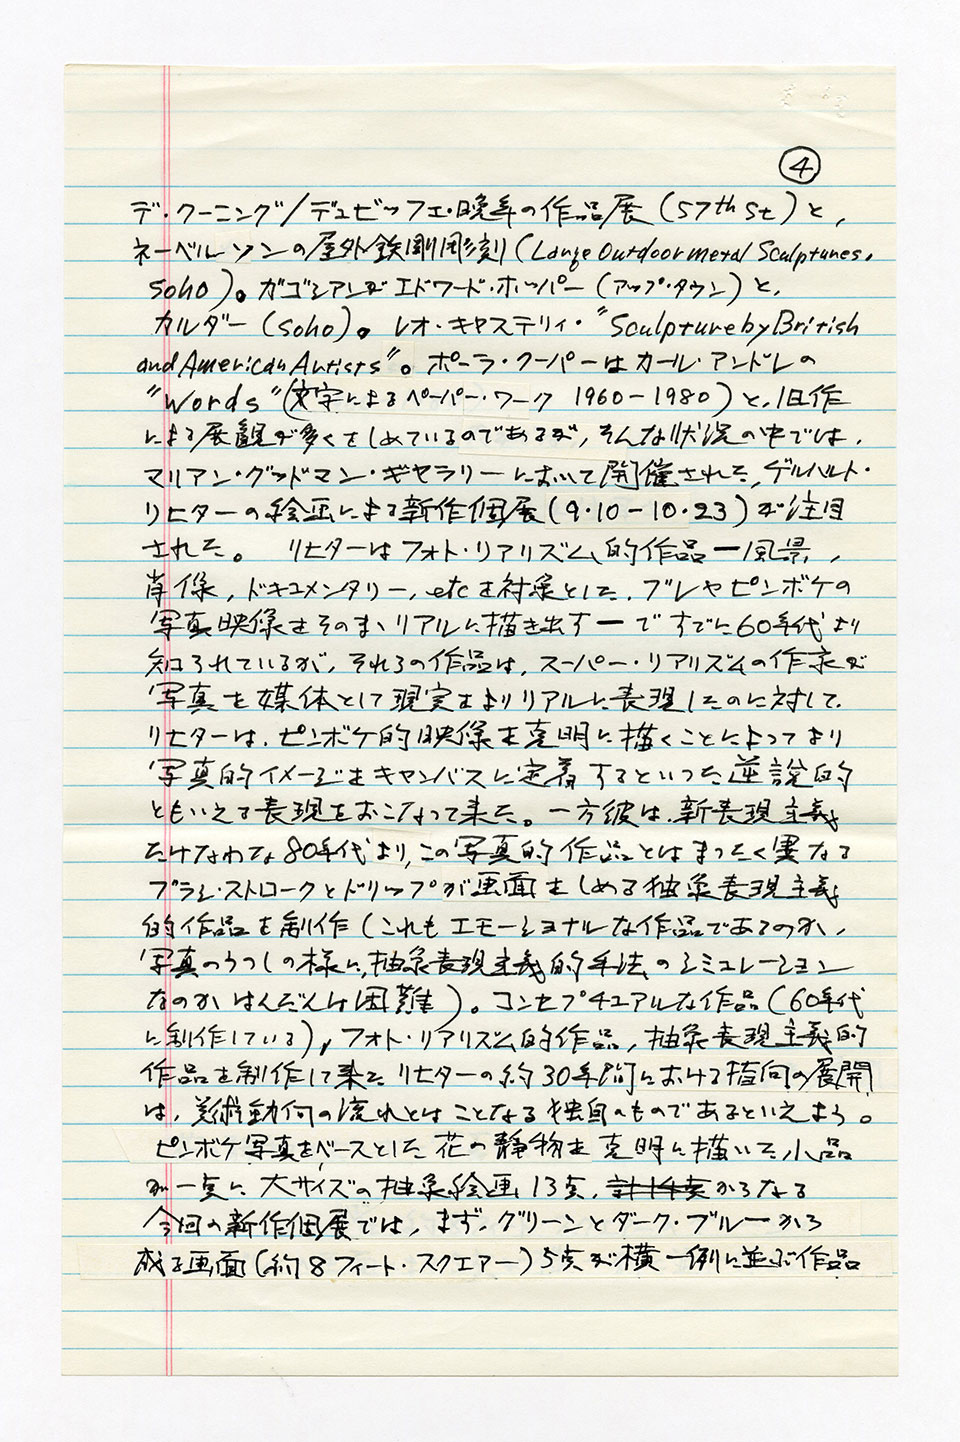 ④
デ・クーニング/デュビッフェ・晩年の作品展(57th St)と,
ネーベルソンの屋外鉄剛彫刻(Large Outdoor metal Sculptures,
Soho)。ガゴシアンがエドワード・ホッパー(アップ・タウン)と,
カルダー(Soho)。レオ・キャステリィ・"Sculpture by British
and American Artists"。ポーラ・クーパーはカール・アンドレの
"Words"(文字によるペーパー・ワーク 1960-1980)と,旧作
による展観が多くをしめているのであるが,そんな状況の中では,
マリアン・グッドマン・ギャラリーにおいて開催された,ゲルハルト・
リヒターの絵画による新作個展(9・10-10・23)が注目
された。 リヒターはフォト・リアリズム的作品ー風景,
肖像,ドキュメンタリー,etcを対象とした,ブレやピンボケの
写真映像をそのまゝリアルに描き出すーですでに60年代より
知られているが,それらの作品は,スーパー・リアリズムの作家が
写真を媒体として現実をよりリアルに表現したのに対して,
リヒターは,ピンボケ的映像を克明に描くことによってより
写真的イメージをキャンバスに定着するといった逆説的
ともいえる表現をおこなって来た。一方彼は,新表現主義
たけなわな80年代より,この写真的作品とはまったく異なる
ブラシ・ストロークとドリップが画面をしめる抽象表現主義
的作品を制作(これもエモーショナルな作品であるのか,
写真のうつしの様に,抽象表現主義的手法のシミュレーション
なのかはんだんは困難)。コンセプチュアルな作品(60年代
に制作している),フォト・リアリズム的作品,抽象表現主義的
作品を制作して来たリヒターの約30年間における指向の展開
は,美術動向の流れとはことなる独自のものであるといえよう。
ピンボケ写真をベースとした花の静物を克明に描いた小品
が一点に大サイズの抽象絵画13点,計14点からなる
今回の新作個展では,まず,グリーンとダーク・ブルーから
成る画面(約8フィート・スクエアー)5点が横一例に並ぶ作品